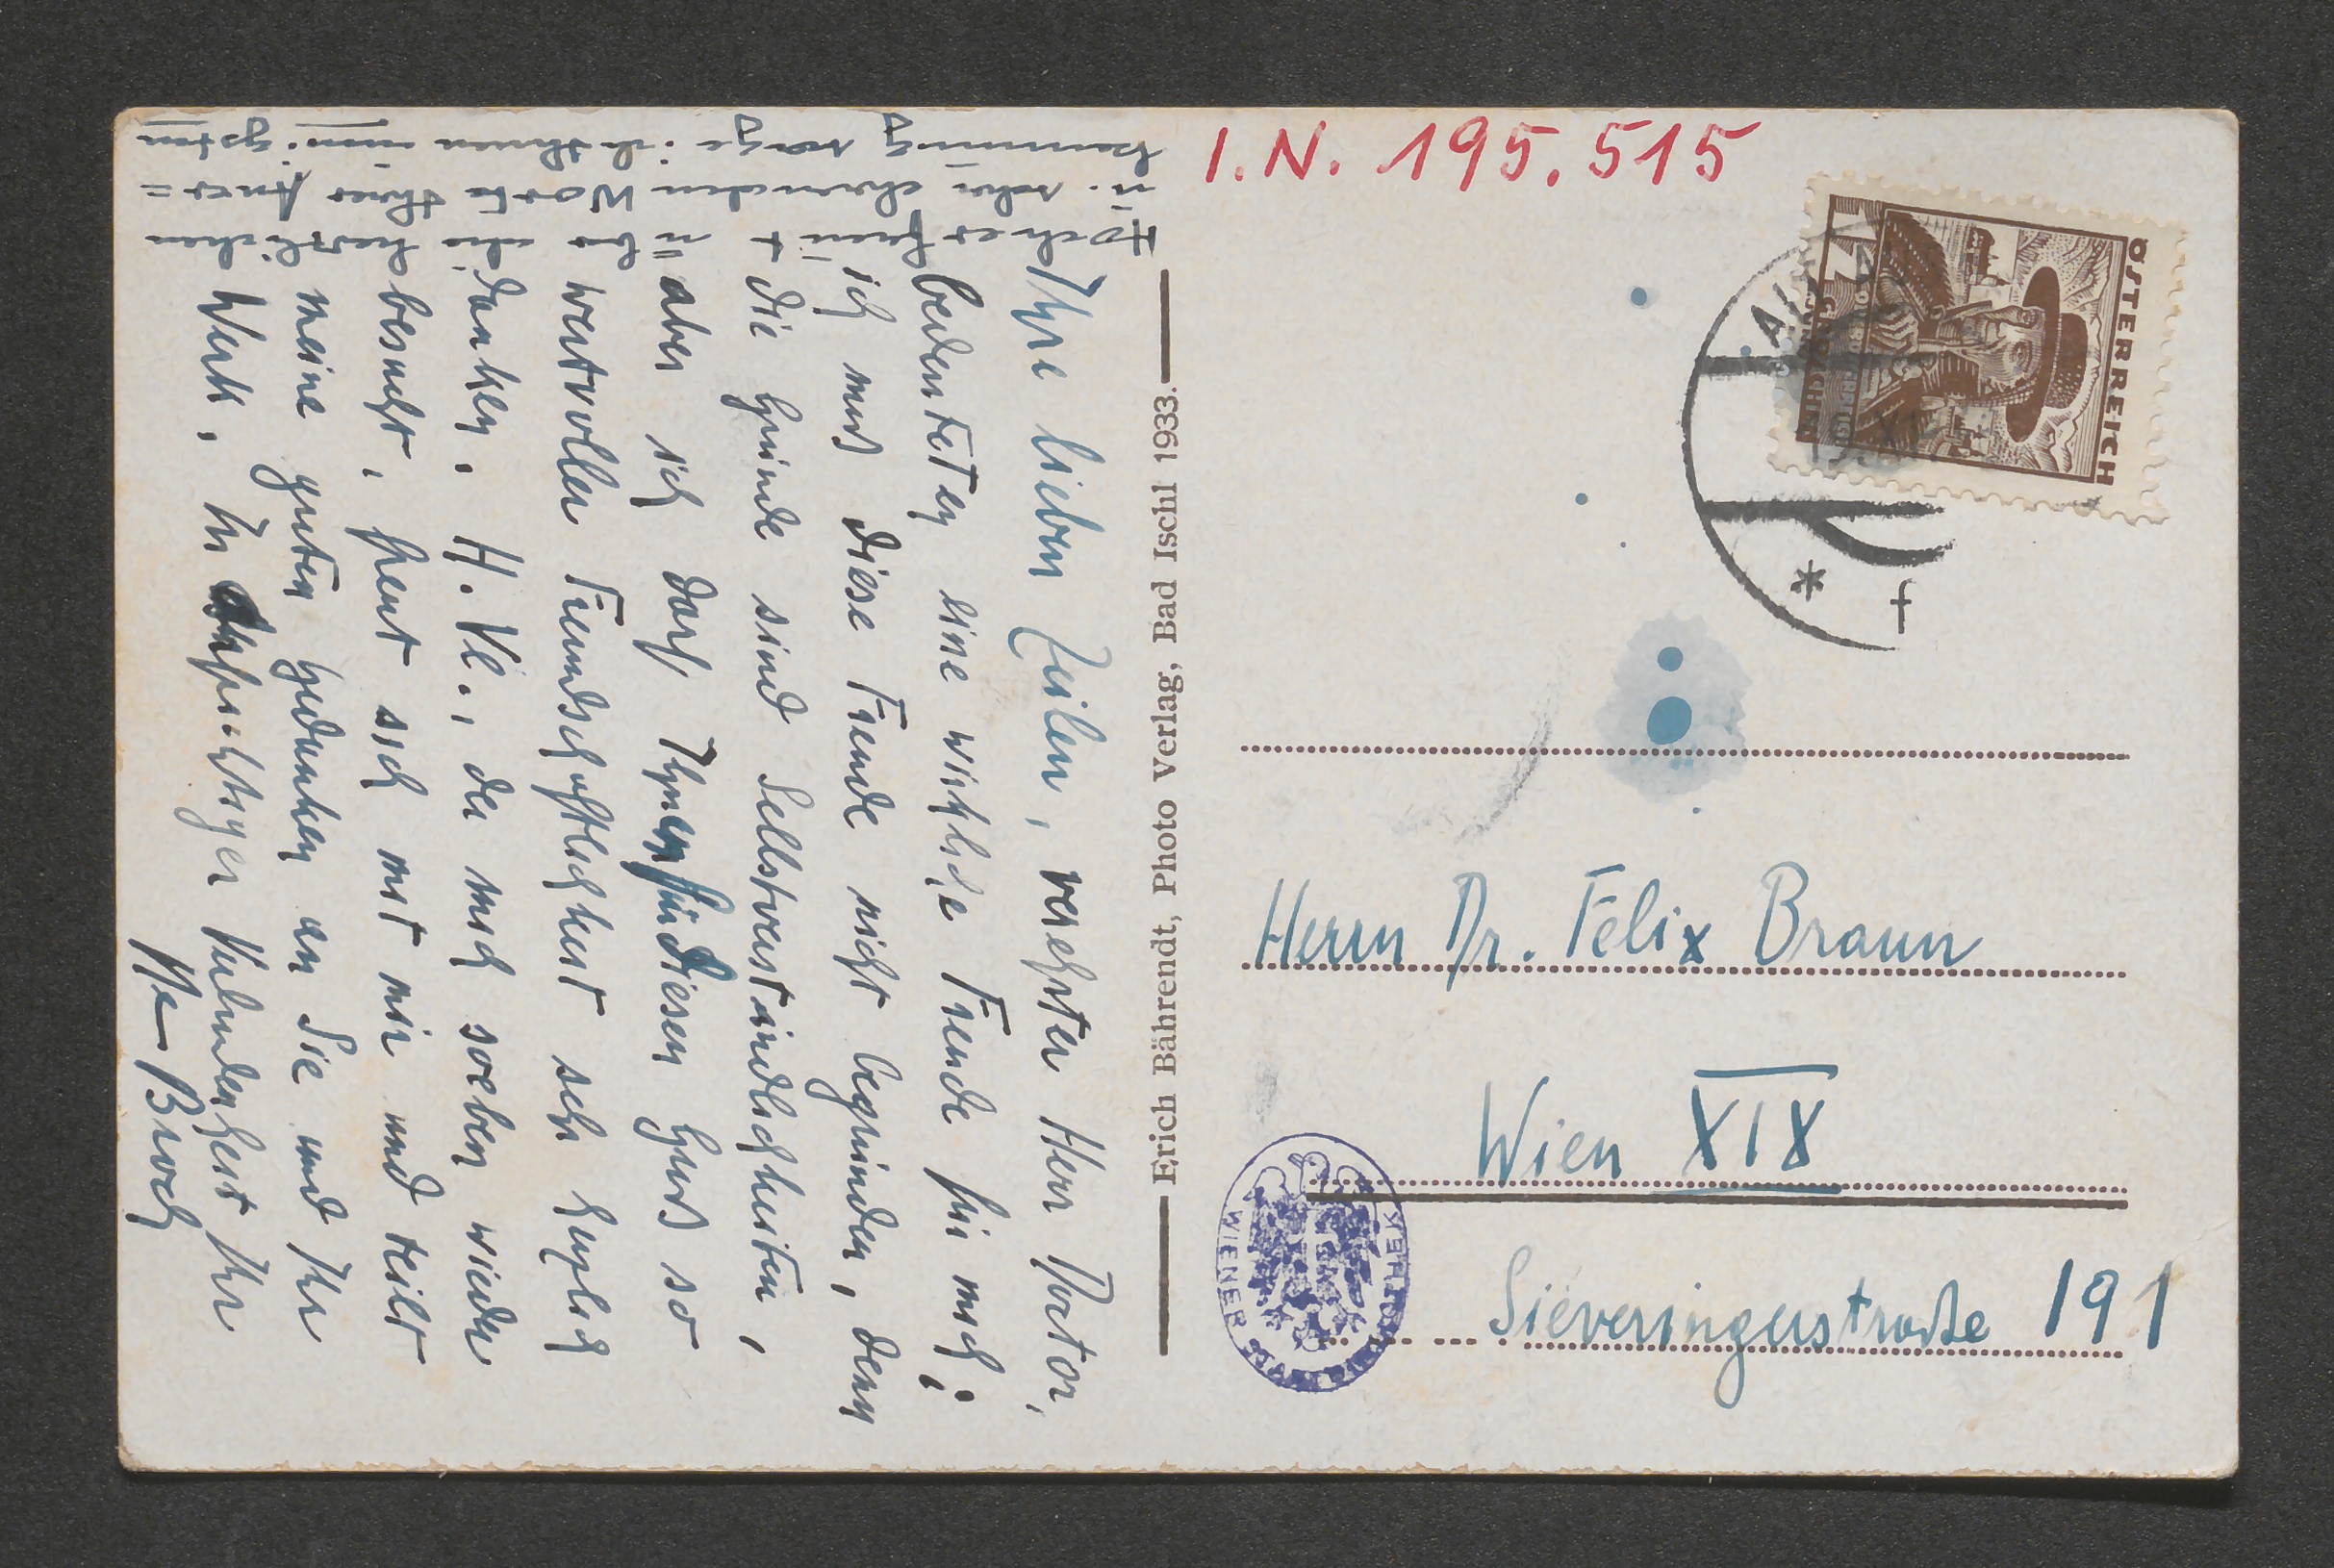 I. N. 195.515
ÖSTERREICH
12
Herrn Dr. Felix Braun
Wien XIX
Sieveringerstraße 191
WIENER
Erich Bährendt, Photo Verlag, Bad Ischl 1933.
Ihre lieben Zeilen, verehrter Herr Doctor,
bedeuteten eine wirkliche Freude für mich;
ich muß diese Freude nicht begründen, denn
die Gründe sind Selbstverständlichkeiten,
aber ich darf Ihnen für diesen Gruß so
wertvoller Freundschaftlichkeit sehr herzlich
danken. H. Vl., der mich soeben wieder
besucht, freut sich mit mir und teilt
meine guten Gedanken an Sie und Ihr
Werk. In aufrichtiger Verbundenheit Ihr
H Broch
Hocherfreut über die herzlichen
u. sehr ehrenden Worte Ihrer Aner=
kennung sage ich Ihnen innigsten